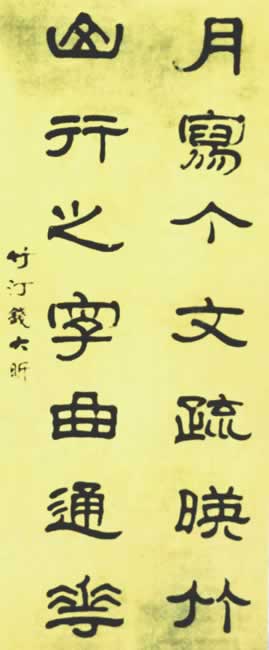 月寫个文疏暎竹
山行之字曲通花
竹汀錢大昕